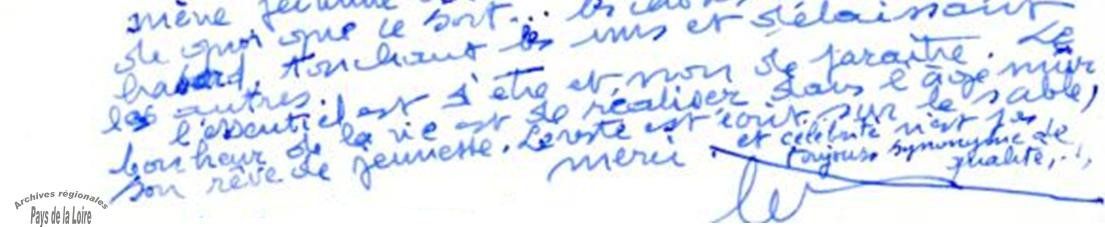 mène
de quoi que ce soit... les
hasard, touchant les uns et délaissant
les autres.
l'essentiel est d'être et non de paraître. Le
bonheur de la vie est de réaliser dans l'âge mûr
son rêve de jeunesse. Le reste est écrit sur le sable,
merci.
et célébrité n'est pas
toujours synonyme de
qualité...
Archives régionales
Pays de la Loire